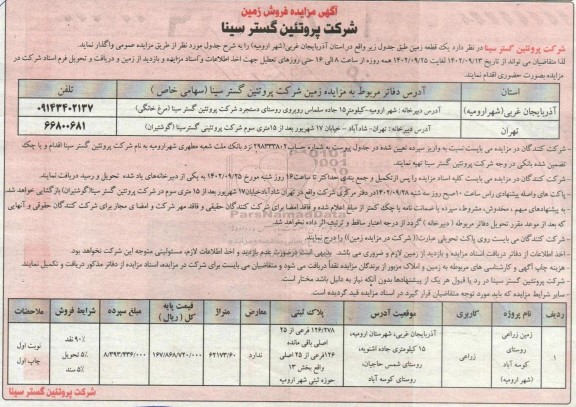 آگهی مزایده فروش زمین
شرکت پروتئین گستر سینا
شرکت پروتئین گستر سینا در نظر دارد یک قطعه زمین طبق جدول زیر واقع در استان آذربایجان غربی(شهر ارومیه) را به شرح جدول مورد نظر از طریق مزایده عمومی واگذار نماید.
لذا متقاضیان می تواند از تاریخ ۱۴۰۲/۰۹/۱۳ لغایت ۱۴۰۲/۰۹/۲۵ همه روزه از ساعت ۸ الی ۱۶ حتی روزهای تعطیل جهت اخذ اطلاعات و اسناد مزایده و بازدید از زمین و دریافت و تحویل فرم اسناد شرکت در
مزایده بصورت حضوری اقدام نمایند.
استان آدرس دفاتر مربوط به مزایده زمین شرکت پروتئین گستر سینا (سهامی خاص ) تلفن
آذربایجان غربی(شهرارومیه) آدرس دبیرخانه: شهر ارومیه-کیلومتر۱۵ جاده سلماس روبروی روستای دستجرد شرکت پروتئین گستر سینا (مرغ خانگی) ۰۹۱۴۳۴۰۲۱۳۷
تهران آدرس دبیرخانه: تهران- شادآباد - خیابان ۱۷ شهریور بعد از ۱۵متری سوم شرکت پروتئینی گسترسینا (گوشتیران) ۶۶۸۰۰۶۸۱
- شرکت کنندگان در مزایده می بایست نسبت به واریز سپرده تعیین شده در جدول پیوست به شماره حساب ۲۹۸۳۳۳۸۰۲ نزد بانک ملت شعبه مطهری شهرارومیه به نام شرکت پروتئین گستر سینا اقدام و یا چک
تضمین شده بانکی در وجه شرکت پروتئین گستر سینا تهیه نمایند.
- شرکت کنندگان در مزایده می بایست کلیه اسناد مزایده را پس ازتکمیل و جمع بندی حداکثر تا ساعت۱۶ روز شنبه مورخ ۱۴۰۲/۰۹/۲۵ به یکی از دبیرخانه‌های یاد شده تحویل و رسید دریافت نمایند.
- پاکت های واصله پیشنهادی راس ساعت ۱۰صبح روز سه شنبه ۱۴۰۲/۰۹/۲۸ در دفتر مرکزی شرکت واقع در تهران شادآبادخیابان۱۷ شهریور بعد از ۱۵ متری سوم در شرکت پروتئین گستر سینا(گوشتیران) بازگشایی خواهد شد.
- به پیشنهادهای مبهم ، مخدوش، مشروط، سپرده یا ضمانت نامه یا چک کمتر از مبلغ اعلام شده و فاقد امضا برای شرکت کنندگان حقیقی و فاقد مهر شرکت و امضا ی مجاز برای شرکت کنندگان حقوقی و آنهایی
که بعد از موعد مقرر تحویل دفاتر مربوطه ( دبیرخانه ) گردد از درجه اعتبار ساقط و ترتیب اثر داده نخواهد شد.
- شرکت کنندگان می بایست روی پاکت تحویلی عبارت(( شرکت در مزایده زمین)) را درج نمایند.
- اخذ اطلاعات از دفاتر دریافت اسناد مزایده و بازدید از زمین لازم و ضروری می باشد. بدیهی است درصورت عدم بازدید و اخذ اطلاعات لازم، مسئولیتی متوجه این شرکت نخواهد بود.
- هزینه چاپ آگهی و کارشناسی های مربوطه به زمین و املاک مزبور از برندگان مزایده نقداً دریافت می شود و متقاضیان می بایست برای شرکت در مزایده، اسناد مزایده از دفاتر مذکور دریافت و تکمیل نمایند.
- شرکت پروتئین گستر سینا در رد یا قبول هر یک از پیشنهادها بدون آنکه نیاز به دلیل باشد مختار است.
- سایر شرایط مزایده که باید مورد توجه متقاضیان قرار گیرد در اسناد مزایده قید گردیده است.
ردیف نام پروژه کاربری موقعیت آدرس پلاک ثبتی معارض متراژ قیمت پایه کل ( ریال ) مبلغ سپرده شرایط فروش ملاحضات
۱ زمین زراعی روستای کوسه آباد (شهر ارومیه) زراعی آذربایجان غربی، شهرستان ارومیه، ۱۵ کیلومتری جاده اشنویه، روستای شمس حاجیان، روستای کوسه آباد ۱۲۶/۲۷۸ فرعی از ۲۵ اصلی باقی مانده ۱۲۶فرعی از ۲۵ اصلی واقع بخش ۱۳ حوزه ثبتی شهر ارومیه ندارد ۶۲۱۷۳/۶۰ ۱۶۷/۸۶۸/۷۲۰/۰۰۰ ۸/۳۹۳/۴۳۶/۰۰۰ ۹۰٪ نقد ۵٪ تحویل ۵٪ سند نوبت اول چاپ اول
شرکت پروتئین گستر سینا
ParsNamadData